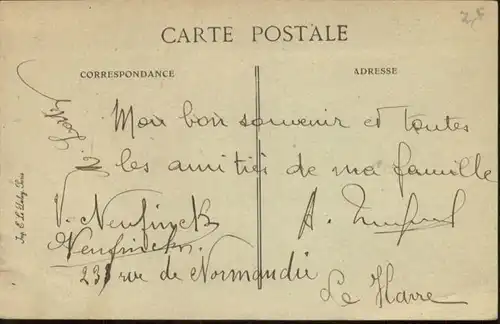 CARTE POSTALE
CORRESPONDANCE
ADRESSE
Mon bon souvenir et toutes
les amitiés de ma famille
V. Neufinck
Neufinck
A.
23, rue de Normandie
Le Havre